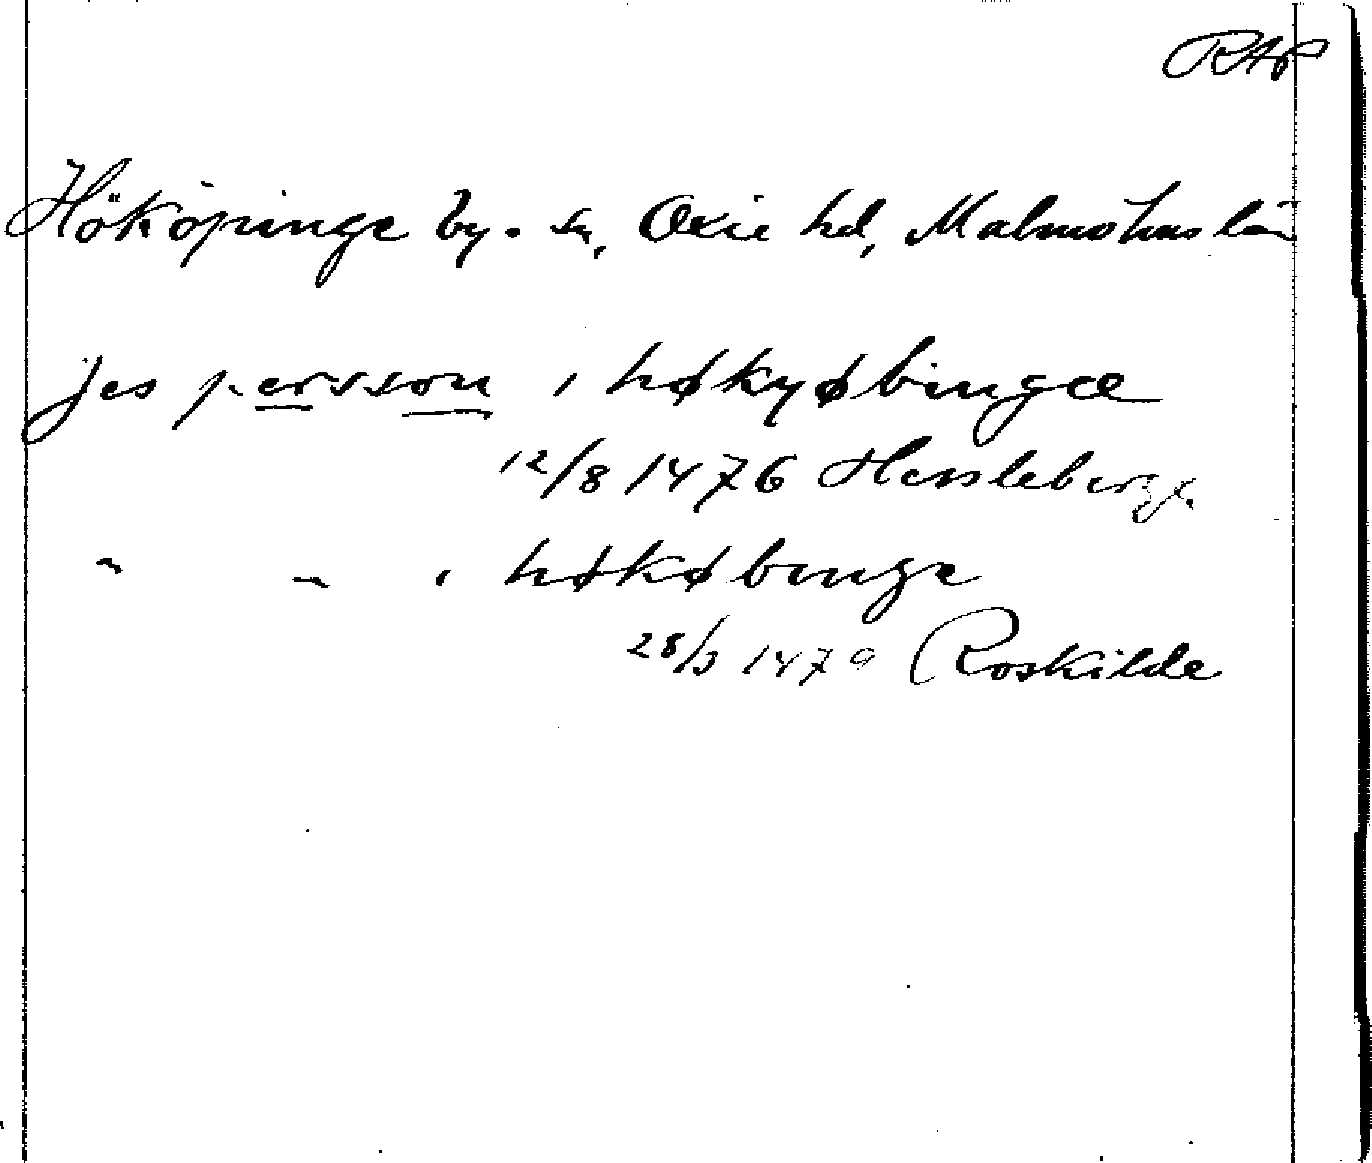 RAP
Hököpinge by. sn, Oxie hd, Malmöhus län
jes persson i høkyøbingæ
12/8 1476 Hessleberga
" " i høkøbinge
28/3 1479 Roskilde